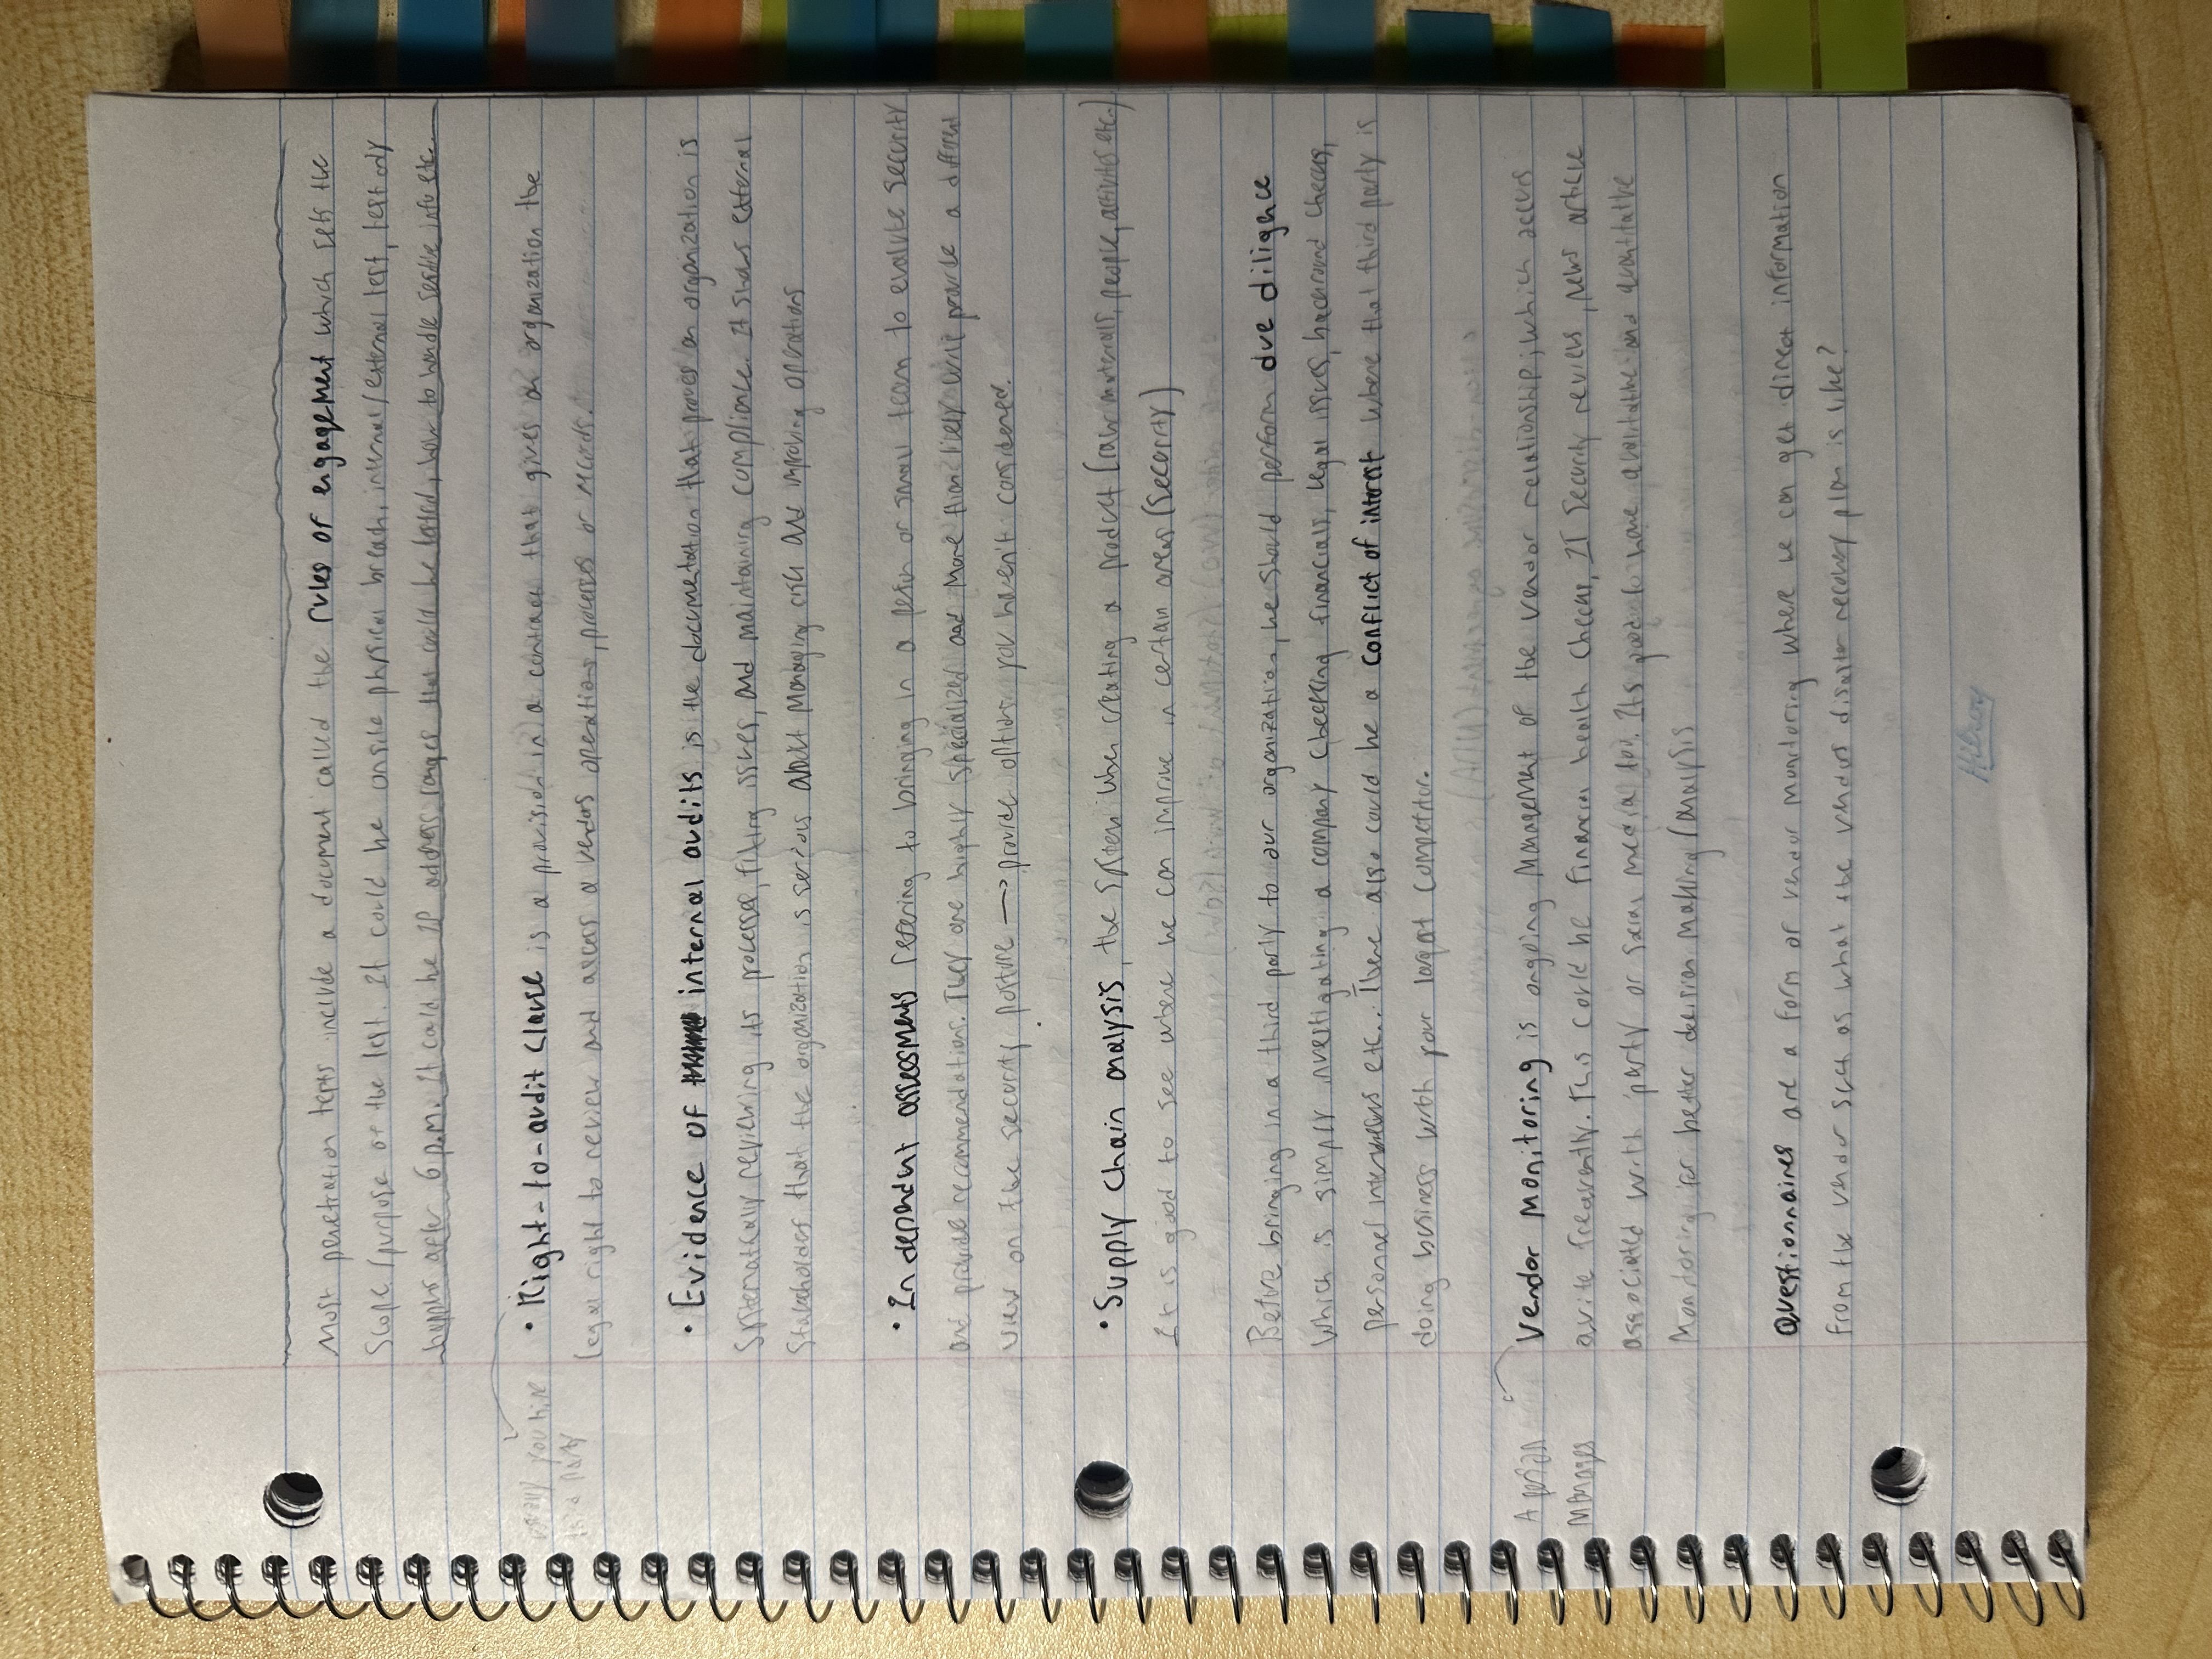 Most penetration tests include a document called the rules of engagement which sets the
scope/purpose of the test. It could be onsite physical breach, internal/external test, test only
happens after 6 p.m. It could be IP address ranges that could be tested, how to handle sensitive info etc...
usually you hire
third party
• Right-to-audit clause is a provision in a contract that gives an organization the
legal right to review and access a vendors operations, processes or records.
• Evidence of internal audits is the documentation that proves an organization is
systematically reviewing its processes, fixing issues, and maintaining compliance. It shows external
stakeholders that the organization is serious about managing risk and improving operations
• Independent assessments refering to bringing in a person or small team to evaluate security
and provide recommendations. They are highly specialized and more than likely will provide a different
view on the security posture → provide options you haven't considered.
• Supply chain analysis, the system when creating a product (raw materials, people, activities etc..)
It is good to see where we can improve in certain areas (security)
Before bringing in a third party to our organization, we should perform due diligence
which is simply investigating a company checking financials, legal issues, background checks,
personnel interviews etc... There also could be a conflict of interest where that third party is
doing business with your largest competitor.
A person
manages
Vendor monitoring is ongoing management of the vendor relationship, which occurs
quite frequently. This could be financial health checks, IT security reviews, news article
associated with party or social media too. Its good to have qualitative and quantitative
monitoring for better decision making/analysis
Questionnaires are a form of vendor monitoring where we can get direct information
from the vendor such as what the vendors disaster recovery plan is like?
Hilroy